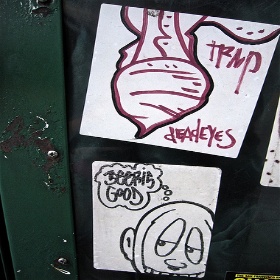 TRMP
deadeyes
BEER IS
GOOD